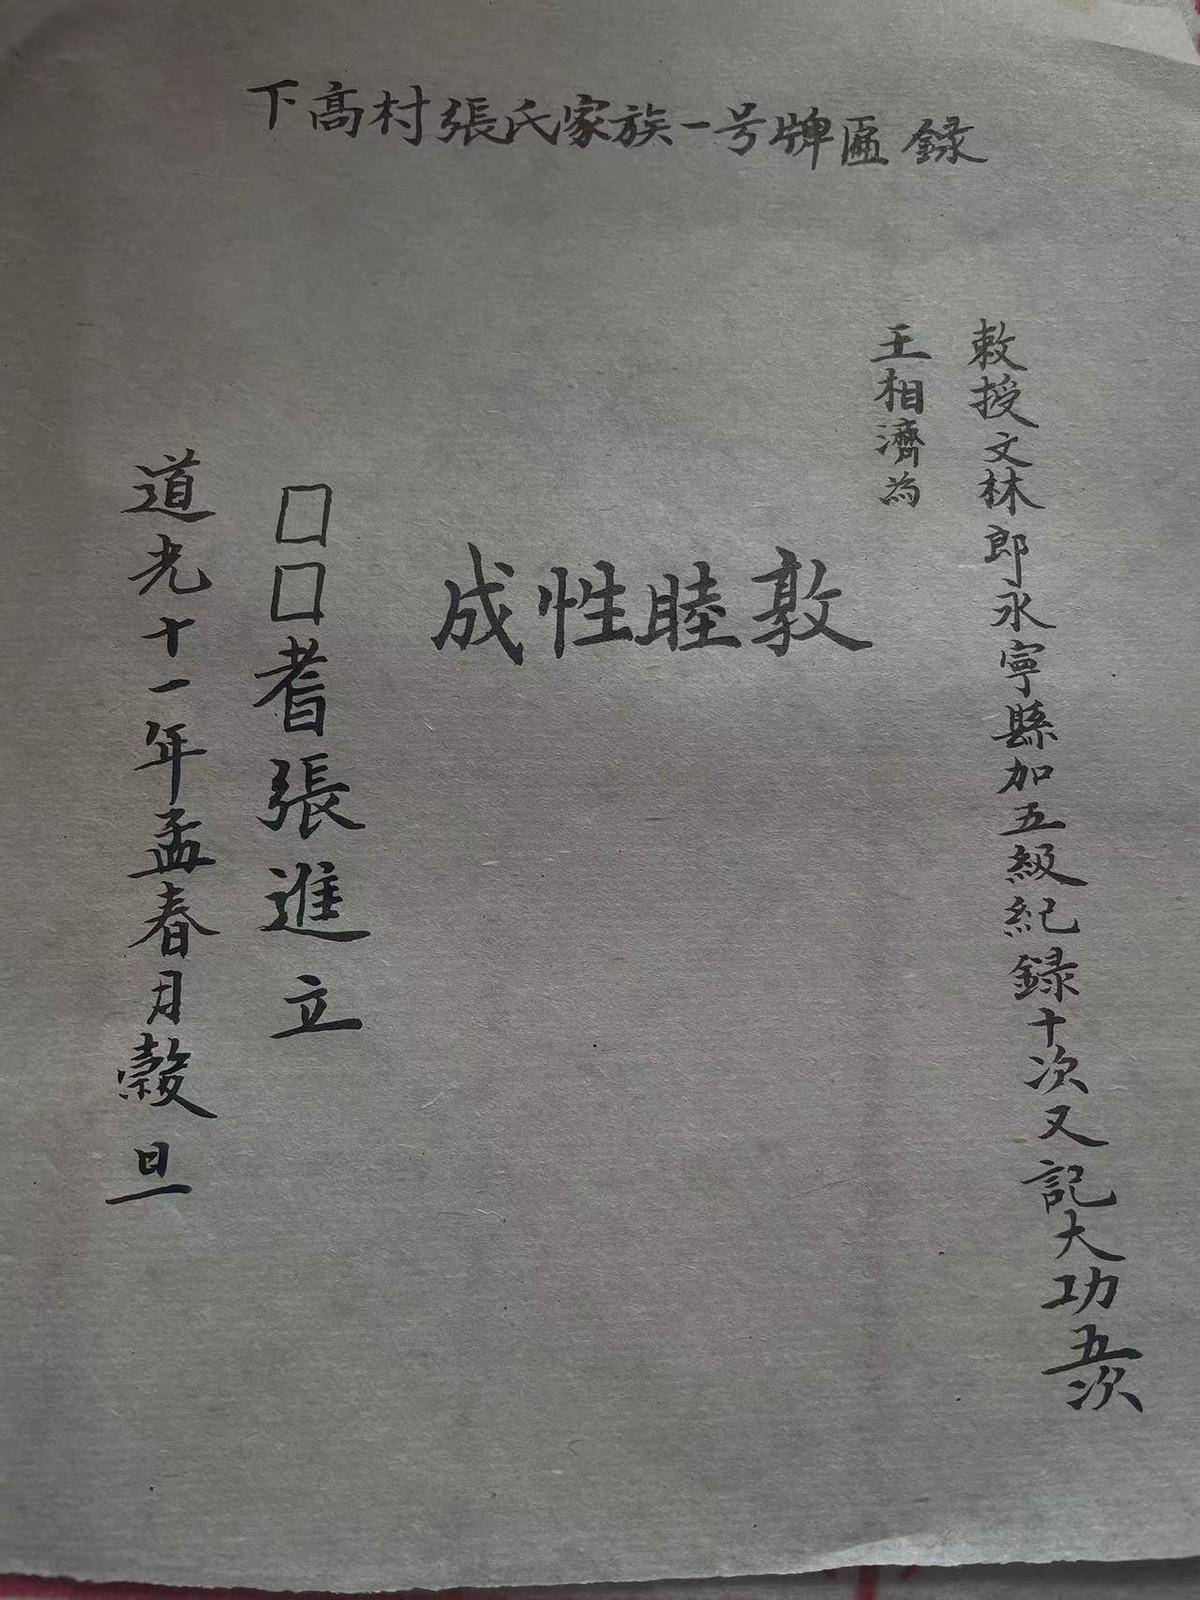 下高村張氏家族一号牌匾録
敕授文林郎永寧縣加五級紀録十次又記大功五次
王相濟為
敦睦性成
□□耆張進立
道光十一年孟春月穀旦